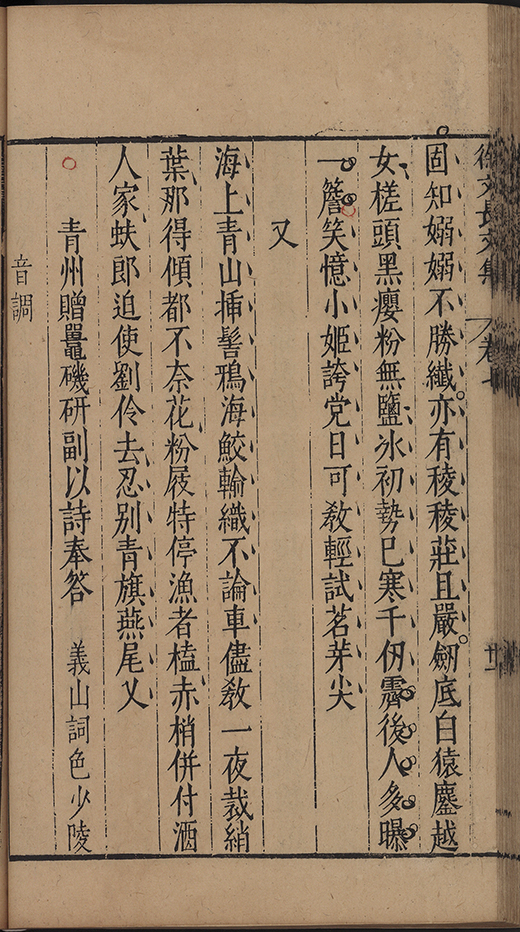 徐文長文集 卷七 廿
固知嫋嫋不勝纖亦有稜稜莊且嚴劒底白猿鏖越
女槎頭黑癭粉無鹽氷初勢已寒千仞霽後人多曝
一簷笑憶小姬誇党日可教輕試茗芽尖
又
海上青山挿髻鴉海鮫輸織不論車儘教一夜裁綃
葉那得傾都不奈花粉屐特停漁者榼赤梢併付酒
人家蚨郎迫使劉伶去忍別青旗燕尾乂
青州贈鼉磯研副以詩奉答 義山詞色少陵
音調